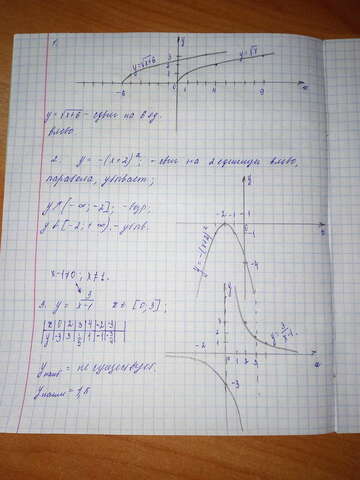 1.
y
y=√x+6
y=√x
-6 0 4 9 x
y=√x+6 - сдвиг на 6 ед.
влево.
2. y = -(x+2)²; - сдвиг на 2 единицы влево,
парабола, убывает;
y↑(-∞; -2]; - возр;
y↓[-2; +∞) - убыв.
y
-2 -1 0
-1
y=-(x+2)²
x-1≠0; x≠1.
3. y = 3/x-1 x ∈ [0; 3];
x 0 2 3 4 -2 -3
y -3 3
y
-2 1 2 3 x
-3
y наиб = не существ.
y наим = 1,5